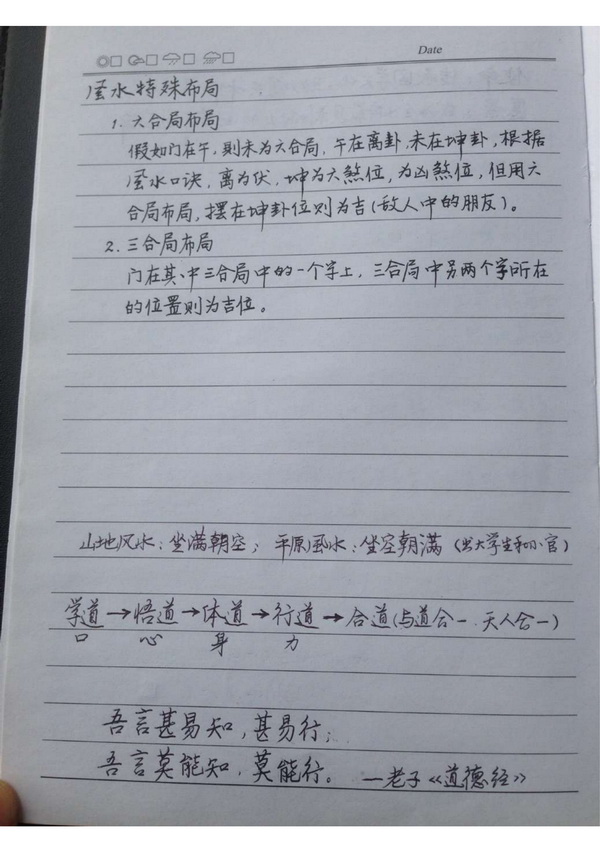 Date
风水特殊布局
1. 六合局布局
假如门在午，则未为六合局，午在离卦，未在坤卦，根据
风水口诀，离为伏，坤为六煞位，为凶煞位，但用六
合局布局，摆在坤卦位则为吉(敌人中的朋友)。
2. 三合局布局
门在其中三合局中的一个字上，三合局中另两个字所在
的位置则为吉位。
山地风水：坐满朝空；平原风水：坐空朝满（出大学生和小官）
学道→悟道→体道→行道→合道(与道合一.天人合一)
口 心 身 力
吾言甚易知，甚易行；
吾言莫能知，莫能行。—老子《道德经》